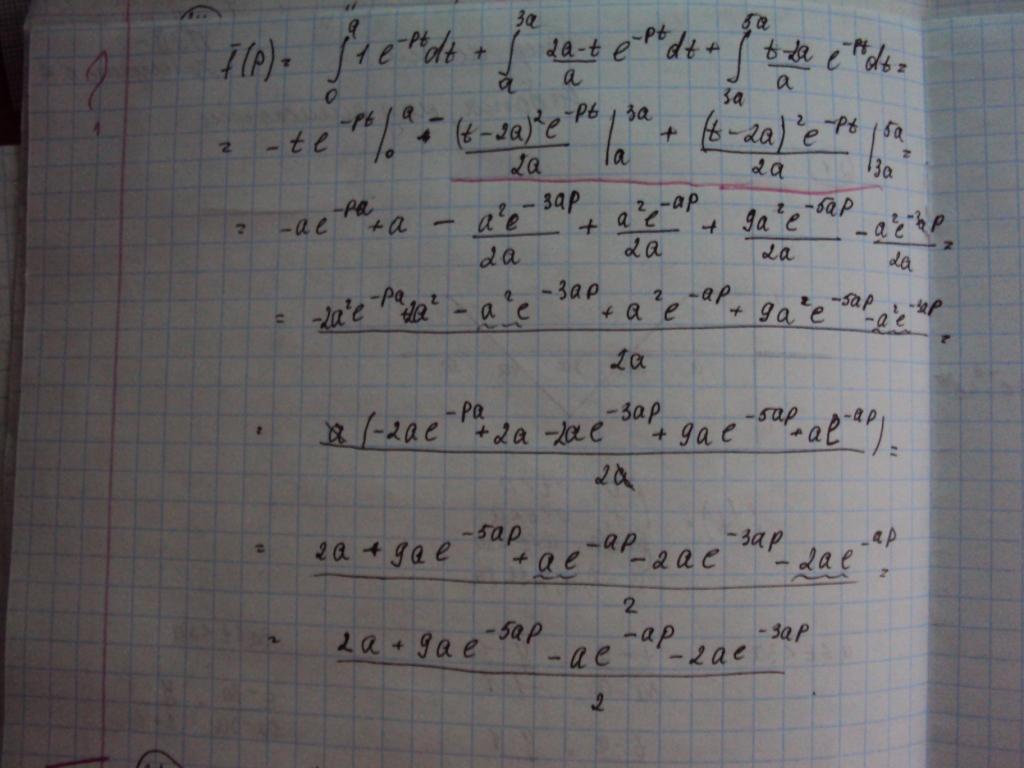 ?
f̄(p) = ∫₀ᵃ 1 e^{-pt} dt + ∫ₐ^{3a} \frac{2a-t}{a} e^{-pt} dt + ∫_{3a}^{5a} \frac{t-2a}{a} e^{-pt} dt =
= -t e^{-pt} |₀ᵃ - \frac{(t-2a)^2 e^{-pt}}{2a} |ₐ^{3a} + \frac{(t-2a)^2 e^{-pt}}{2a} |_{3a}^{5a} =
= -ae^{-pa} + a - \frac{a^2 e^{-3ap}}{2a} + \frac{a^2 e^{-ap}}{2a} + \frac{9a^2 e^{-5ap}}{2a} - \frac{a^2 e^{-3ap}}{2a} =
= \frac{-2a^2 e^{-pa} + 2a^2 - a^2 e^{-3ap} + a^2 e^{-ap} + 9a^2 e^{-5ap} - a^2 e^{-3ap}}{2a} =
= \frac{a(-2ae^{-pa} + 2a - 2ae^{-3ap} + 9ae^{-5ap} + ae^{-ap})}{2a} =
= \frac{2a + 9ae^{-5ap} + ae^{-ap} - 2ae^{-3ap} - 2ae^{-ap}}{2} =
= \frac{2a + 9ae^{-5ap} - ae^{-ap} - 2ae^{-3ap}}{2}